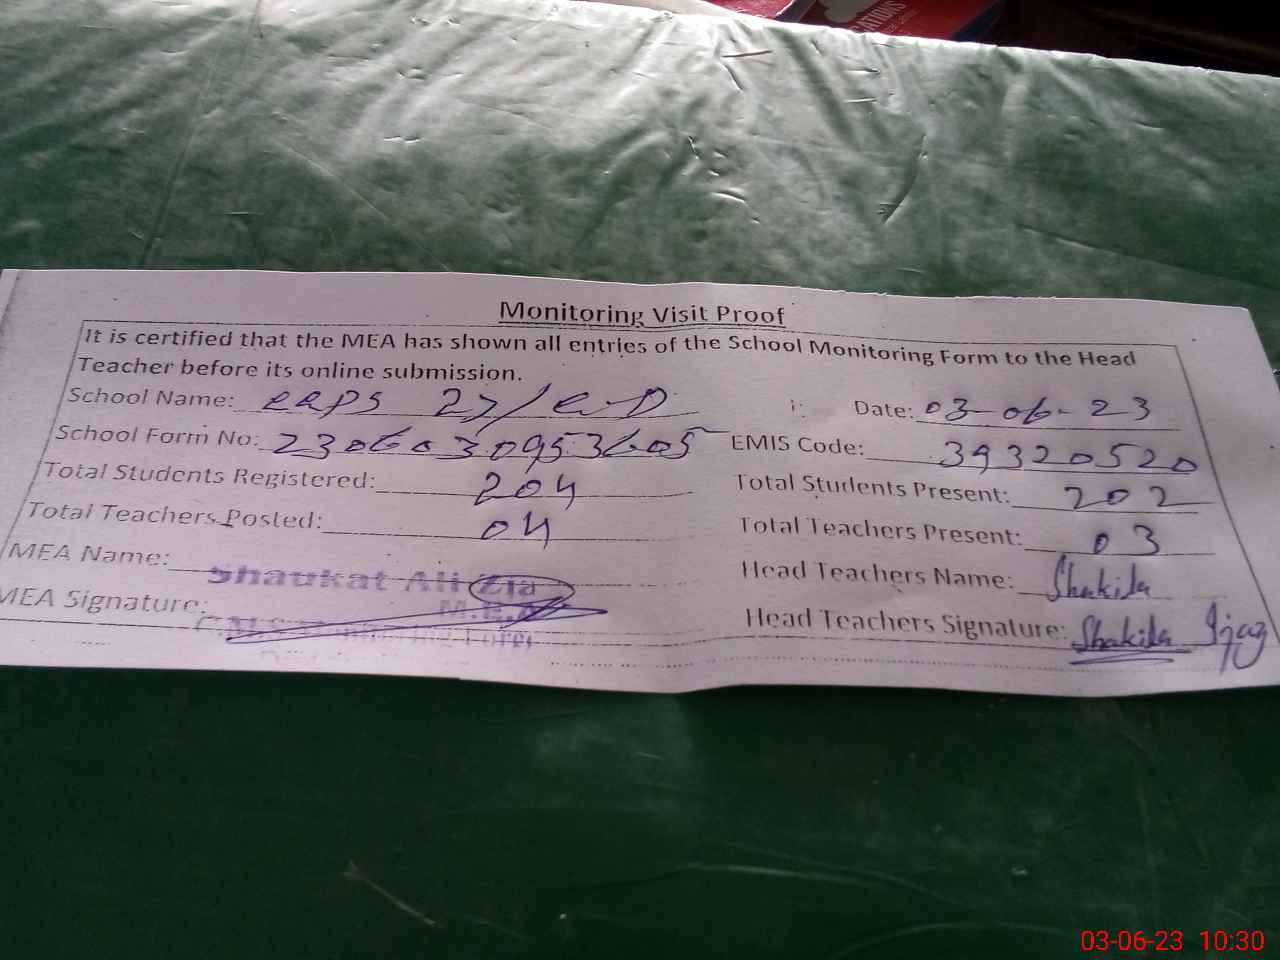 Monitoring Visit Proof
It is certified that the MEA has shown all entries of the School Monitoring Form to the Head
Teacher before its online submission.
School Name: 27/ Date: 03-06-23
School Form No: 2306030953605 EMIS Code: 39320520
Total Students Registered: 204 Total Students Present: 202
Total Teachers Posted: 04 Total Teachers Present: 03
MEA Name: Shaukat Ali Zia Head Teachers Name: Shakila
MEA Signature: M.E.A Head Teachers Signature: Shakila Ijaz
03-06-23 10:30